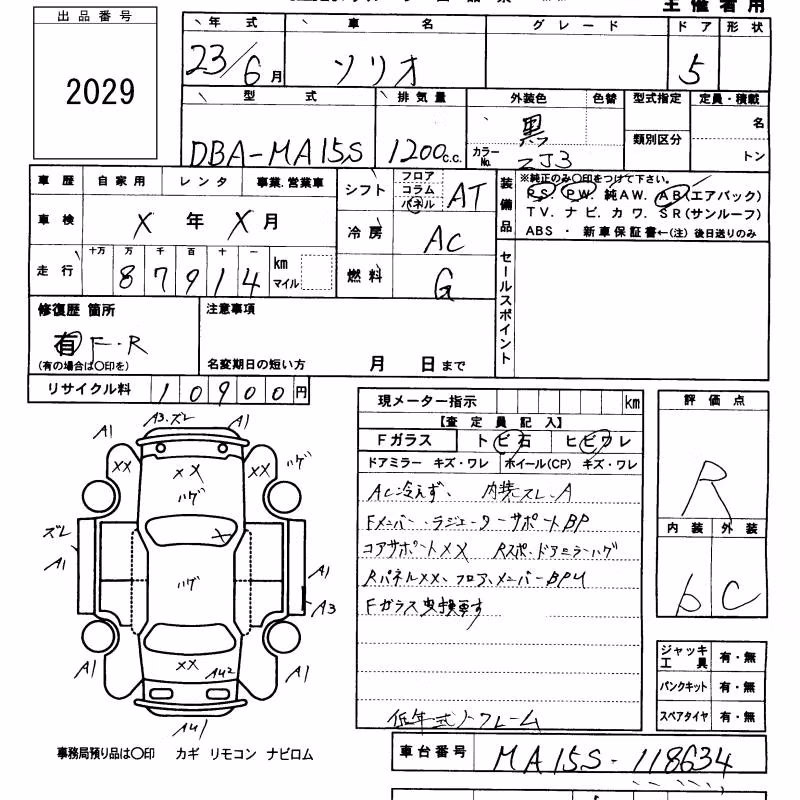 主催者用
出品番号
2029
年式 車名 グレード ドア 形状
23/6月 ソリオ 5
型式 排気量 外装色 色替 型式指定 定員・積載
DBA-MA15S 1200c.c. 黒 カラーNo. ZJ3 類別区分 名
トン
車歴 自家用 レンタ 事業.営業車
車検 X年 X月
走行 十万 万 千 百 十 一
8 7 9 1 4 km マイル
シフト フロア コラム パネル AT
冷房 AC
燃料 G
装備品 ※純正のみ〇印をつけて下さい。
PS. PW. 純AW. AB(エアバック)
TV. ナビ. カワ. SR(サンルーフ)
ABS ・ 新車保証書←(注) 後日送りのみ
セールスポイント
修復歴 箇所
有 F・R
(有の場合は〇印を)
注意事項
名変期日の短い方 月 日まで
リサイクル料 10900円
現メーター指示 km
【査定員記入】
Fガラス トビ石 ヒビワレ
ドアミラー キズ・ワレ ホイール(CP) キズ・ワレ
AC冷えず、 内装スレ.A
Fメンバー.ラジエーターサポートBP
コアサポートXX Rスポ.ドアミラーハゲ
RパネルXX、フロア、メンバーBPU
Fガラス 要換
評価点
R
内装 外装
b C
ジャッキ工具 有・無
パンクキット 有・無
スペアタイヤ 有・無
A3.ズレ
A1 A1
XX XX XX ハゲ
ハゲ
X
ズレ
A1
ハゲ
A1
A3
A1 XX AU2 A1
AU1
事務局預り品は〇印 カギ リモコン ナビロム
車台番号 MA15S-118634